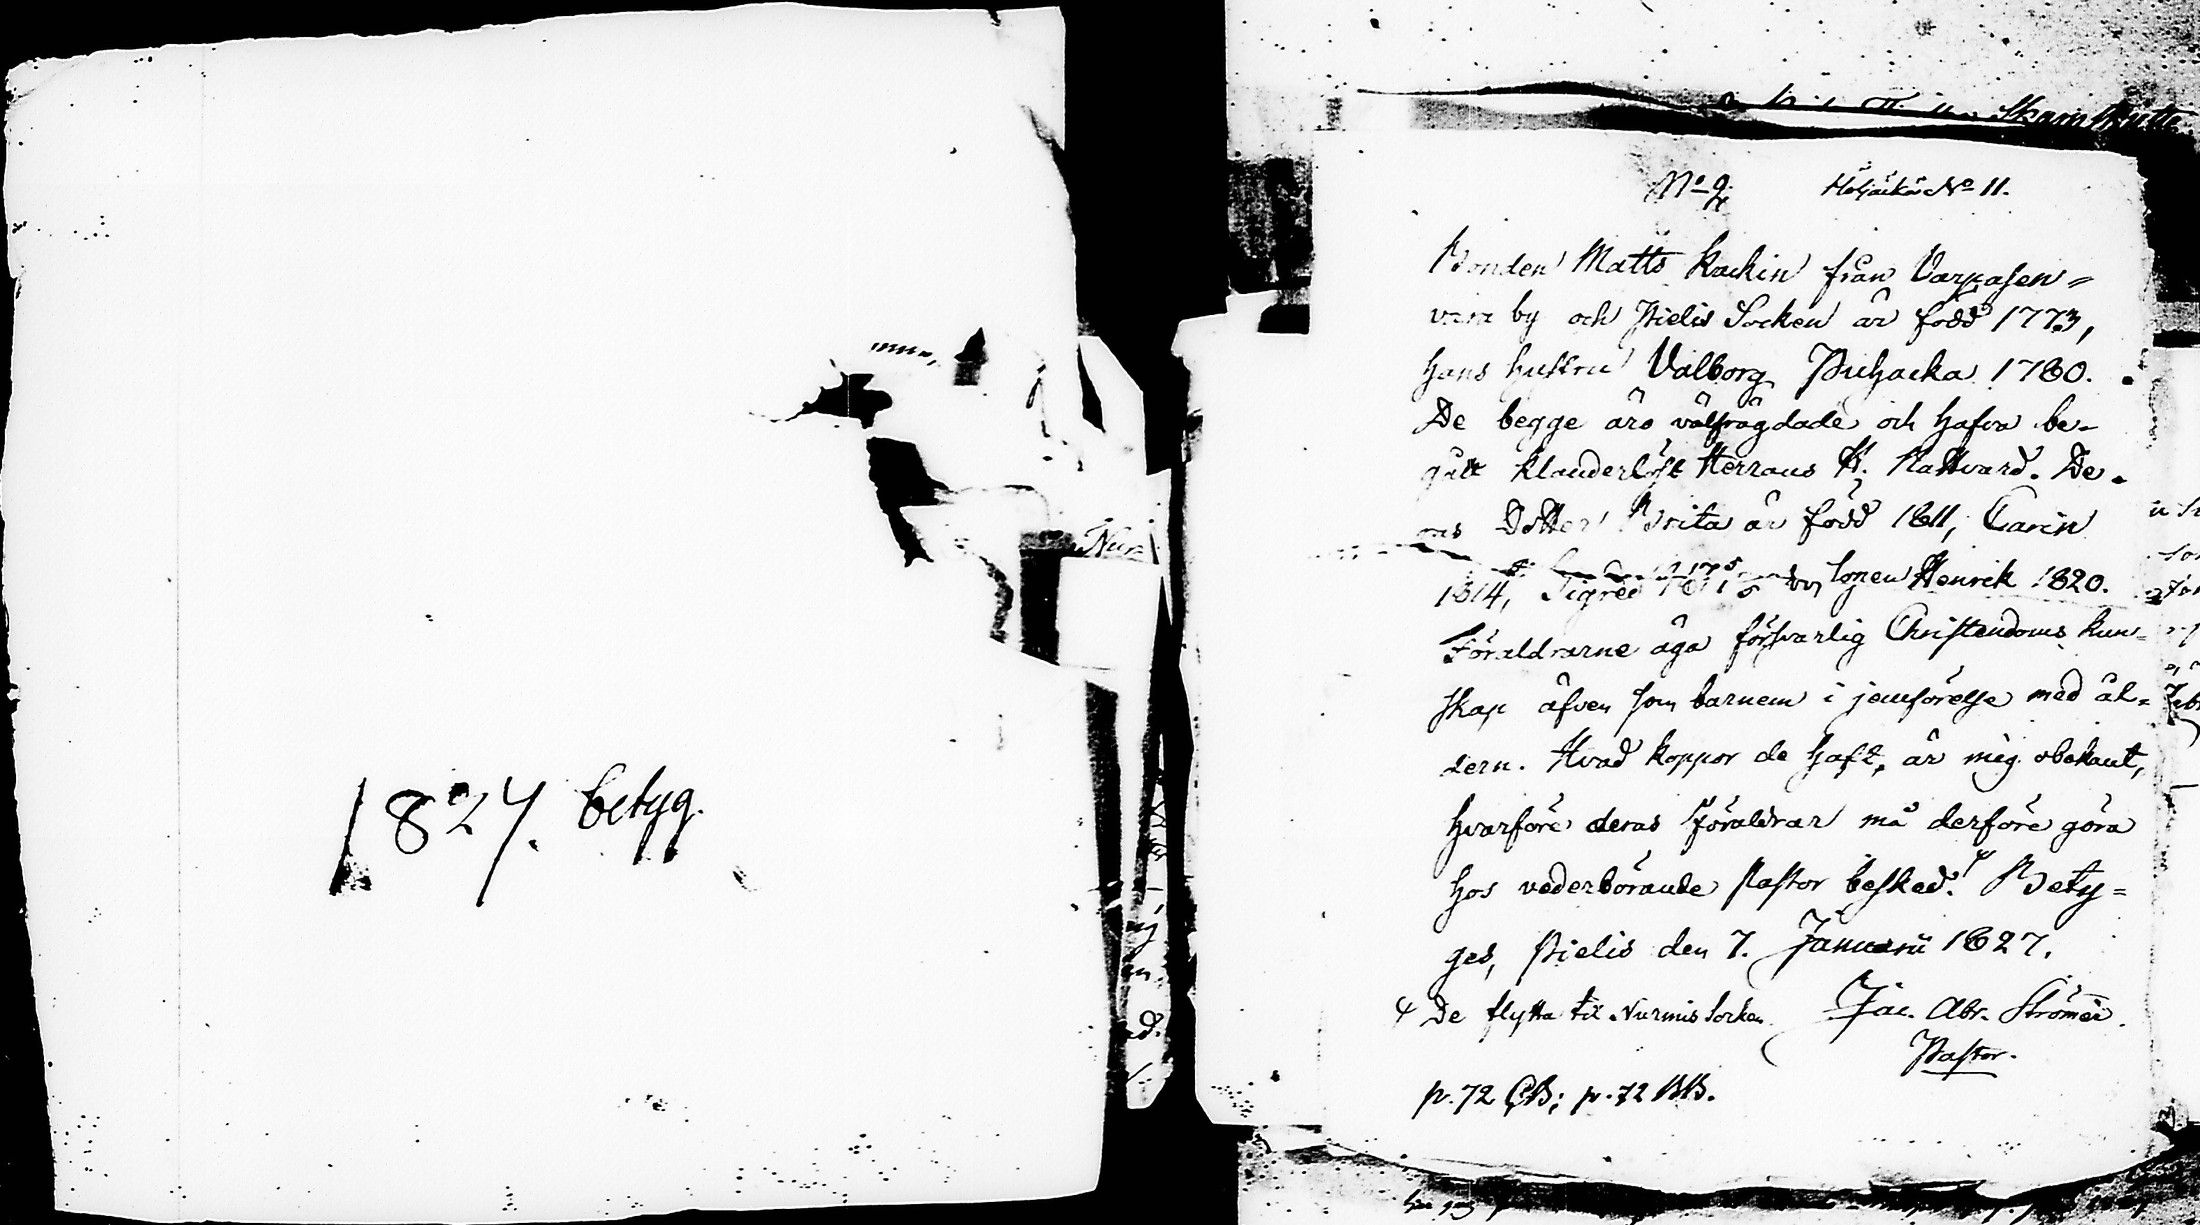 1827. betyg.
Nur
N:o 2. Höljäkä N:o 11.
Bonden Matts Kackin från Varpasen=
vara by och Pielis Socken är född 1773,
hans hustru Valborg Puhacka 1780.
De begge äro välfrägdade och hafva be-
gått klanderlöst Herrans H. Nattvard. De-
ras Dotter Brita är född 1811, Carin
1814, Sigred och sonen Henrik 1820.
Föräldrarne äga försvarlig Christendoms kun=
skap äfven som barnem i jemförelse med ål=
dern. Hvad koppor de haft, är mig obekant,
hvarföre deras Föräldrar må derföre göra
hos vederbörande Pastor besked. Bety=
ges, Pielis den 7. Januarii 1827.
De flytta til Nurmis Socken. Jac. Abr. Strömer.
Pastor.
p. 72 CB; p. 72 BB.